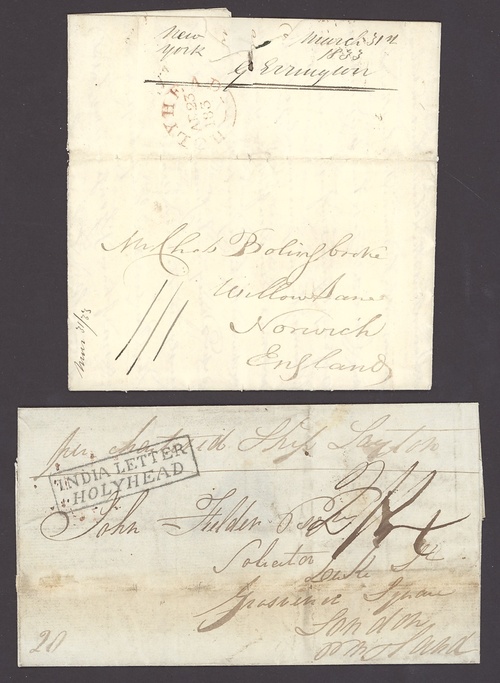 New York
March 31st 1833
G Errington
HOLYHEAD
AP 25
1833
Mr Chas Bolingbroke
Willow Lane
Norwich
England
per
Ship
INDIA LETTER
HOLYHEAD
John Fielder
Solicitor
Duke St
Grosvenor Square
London
England
20